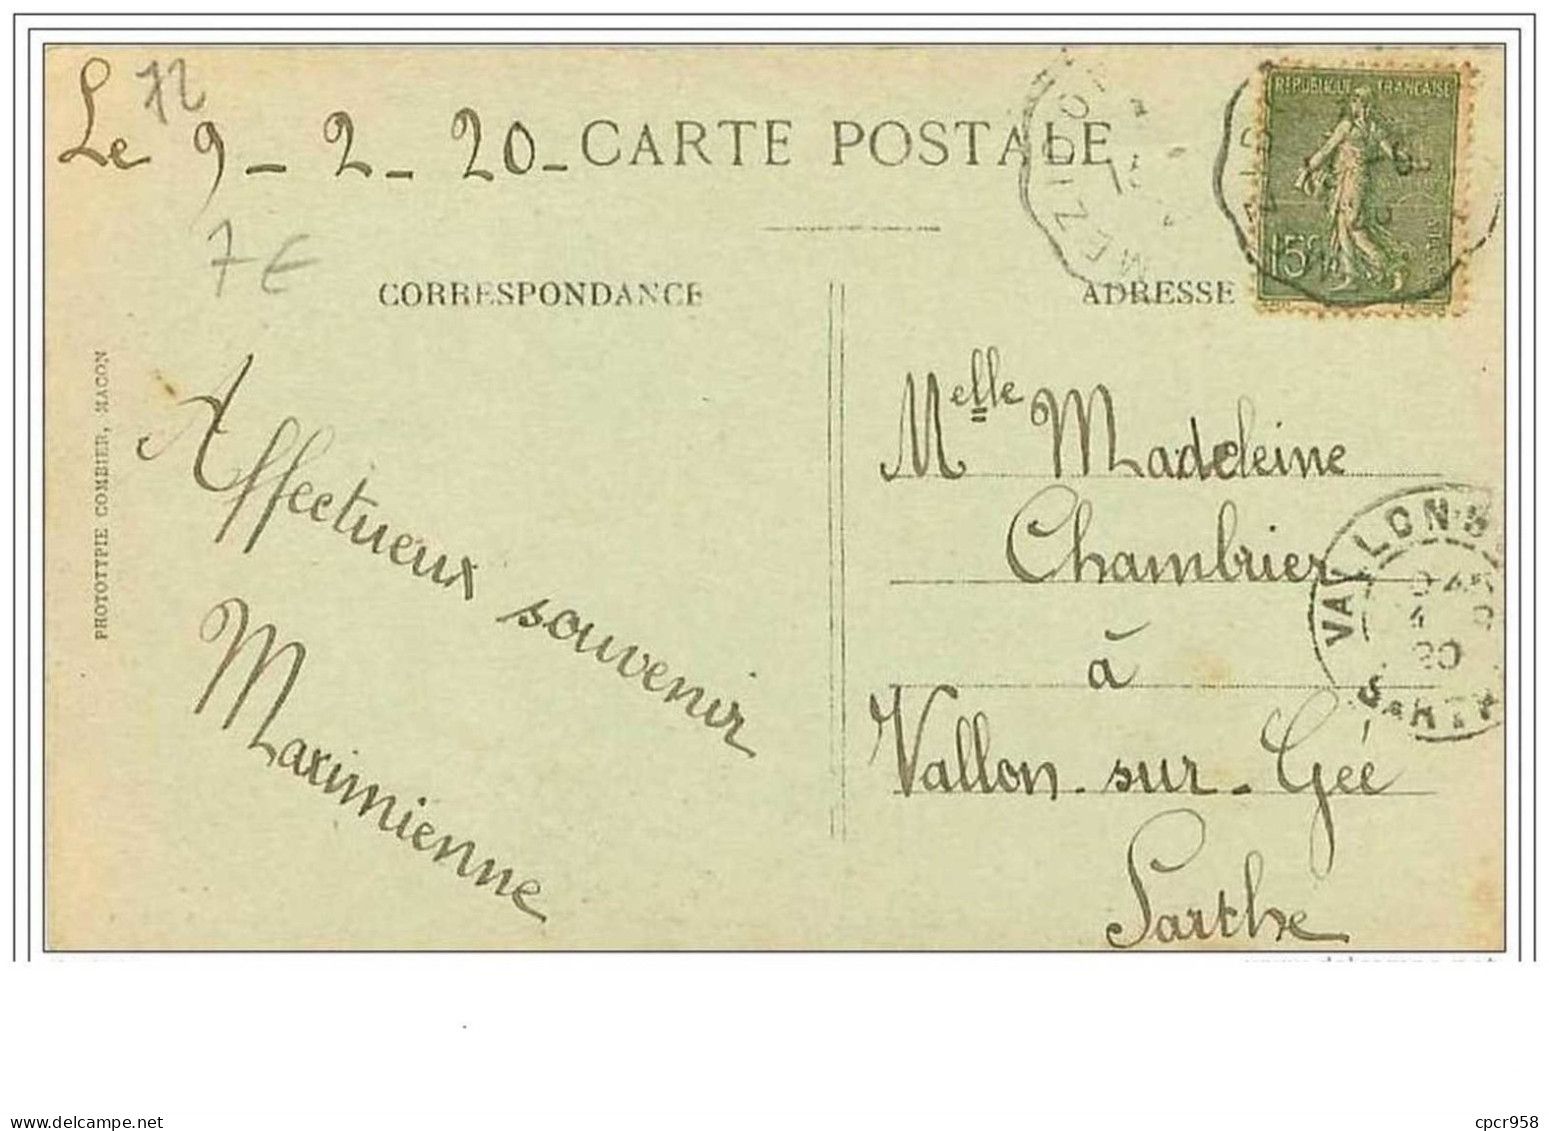 72
Le 9 - 2 - 20 -
CARTE POSTALE
REPUBLIQUE FRANÇAISE
15c
7 €
CORRESPONDANCE
ADRESSE
PHOTOTYPIE COMBIER, MACON
Affectueux souvenir
Maximienne
Melle Madeleine
Chambrier
à
Vallon - sur - Gée
Sarthe
VALLON-S
4
20
SARTHE
MEZIDO
www.delcampe.net
cpcr958